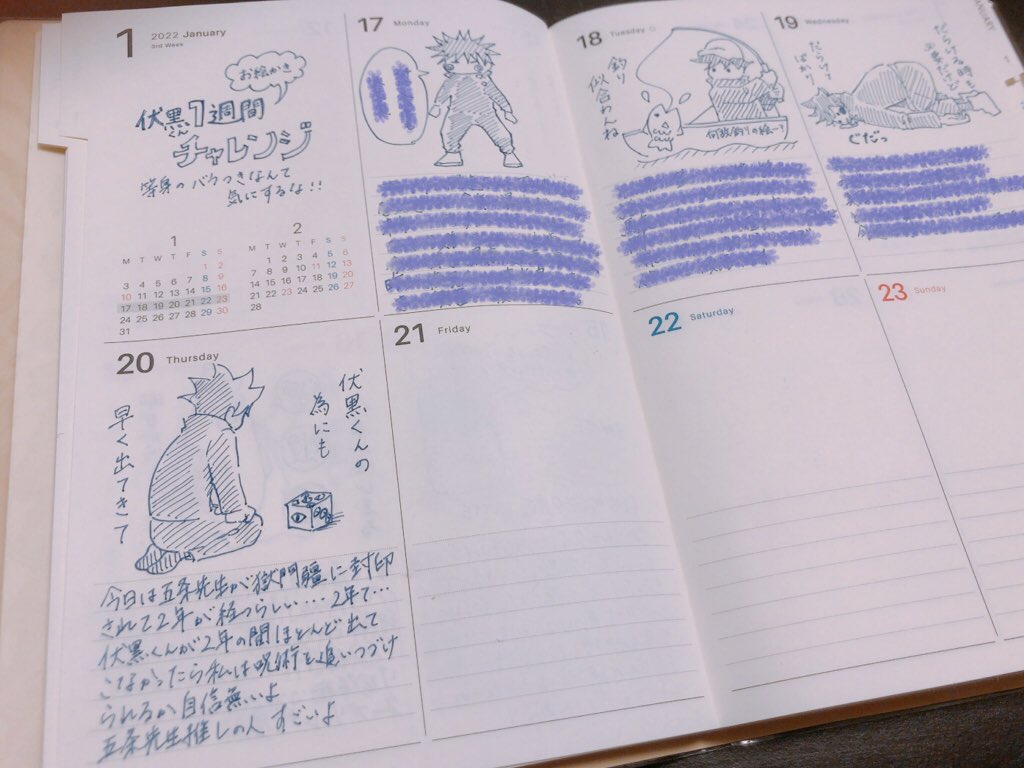 1
2022 January
3rd Week
お絵かき
伏黒くん1週間
チャレンジ
等身のバラつきなんて
気にするな!!
1
M T W T F S S
1 2
3 4 5 6 7 8 9
10 11 12 13 14 15 16
17 18 19 20 21 22 23
24 25 26 27 28 29 30
31
2
M T W T F S S
1 2 3 4 5 6
7 8 9 10 11 12 13
14 15 16 17 18 19 20
21 22 23 24 25 26 27
28
17 Monday
18 Tuesday
釣り
似合わんね
何故釣りの絵…?
19 Wednesday
だらけて
ばかり
ぐだっ
JANUARY
20 Thursday
伏黒くんの
為にも
早く出てきて
今日は五条先生が獄門疆に封印
されて2年が経つらしい…2年て…
伏黒くんが2年の間ほとんど出て
いなかったら私は呪術を追いつづけ
られるか自信無いよ
五条先生推しの人 すごいよ
21 Friday
22 Saturday
23 Sunday